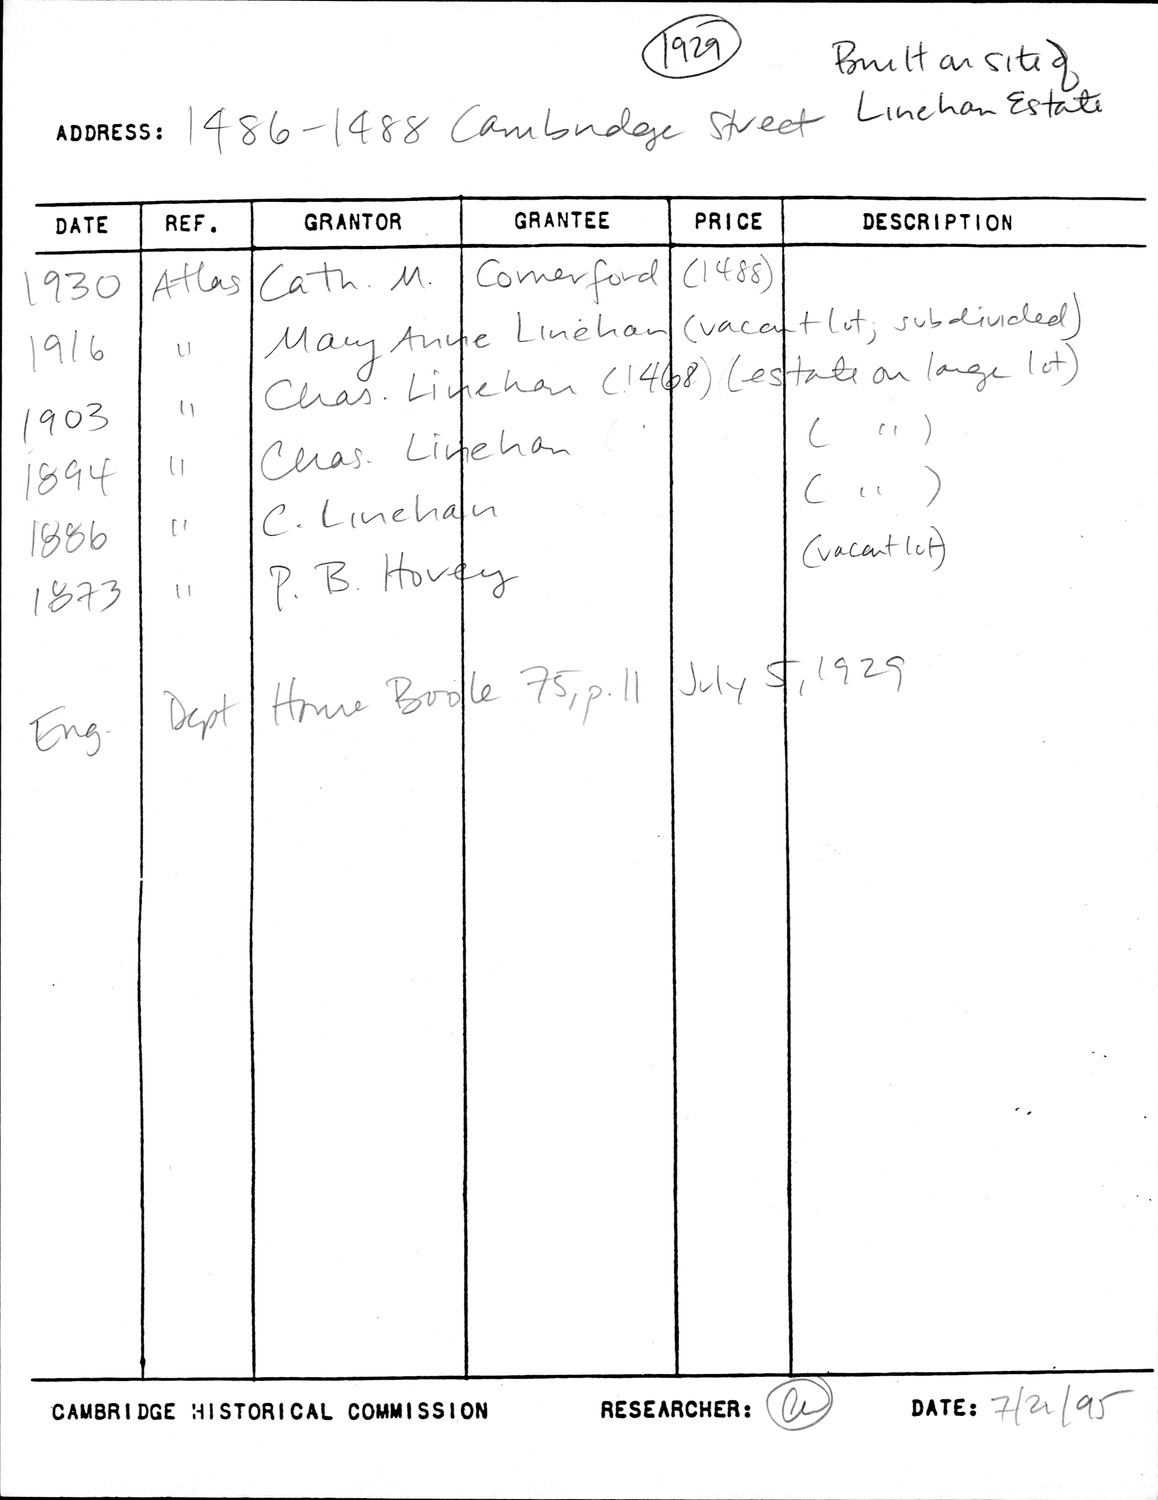 1929
Built on site of
Linehan Estate
ADDRESS: 1486-1488 Cambridge Street
DATE REF. GRANTOR GRANTEE PRICE DESCRIPTION
1930 Atlas Cath. M. Comerford (1488)
1916 " Mary Anne Linehan (vacant lot; subdivided)
1903 " Chas. Linehan (1468) (estate on large lot)
1894 " Chas. Linehan ( " )
1886 " C. Linehan ( " )
1873 " P. B. Hovey (vacant lot)
Eng. Dept House Book 75, p. 11 July 5, 1929
CAMBRIDGE HISTORICAL COMMISSION RESEARCHER: DATE: 7/21/95